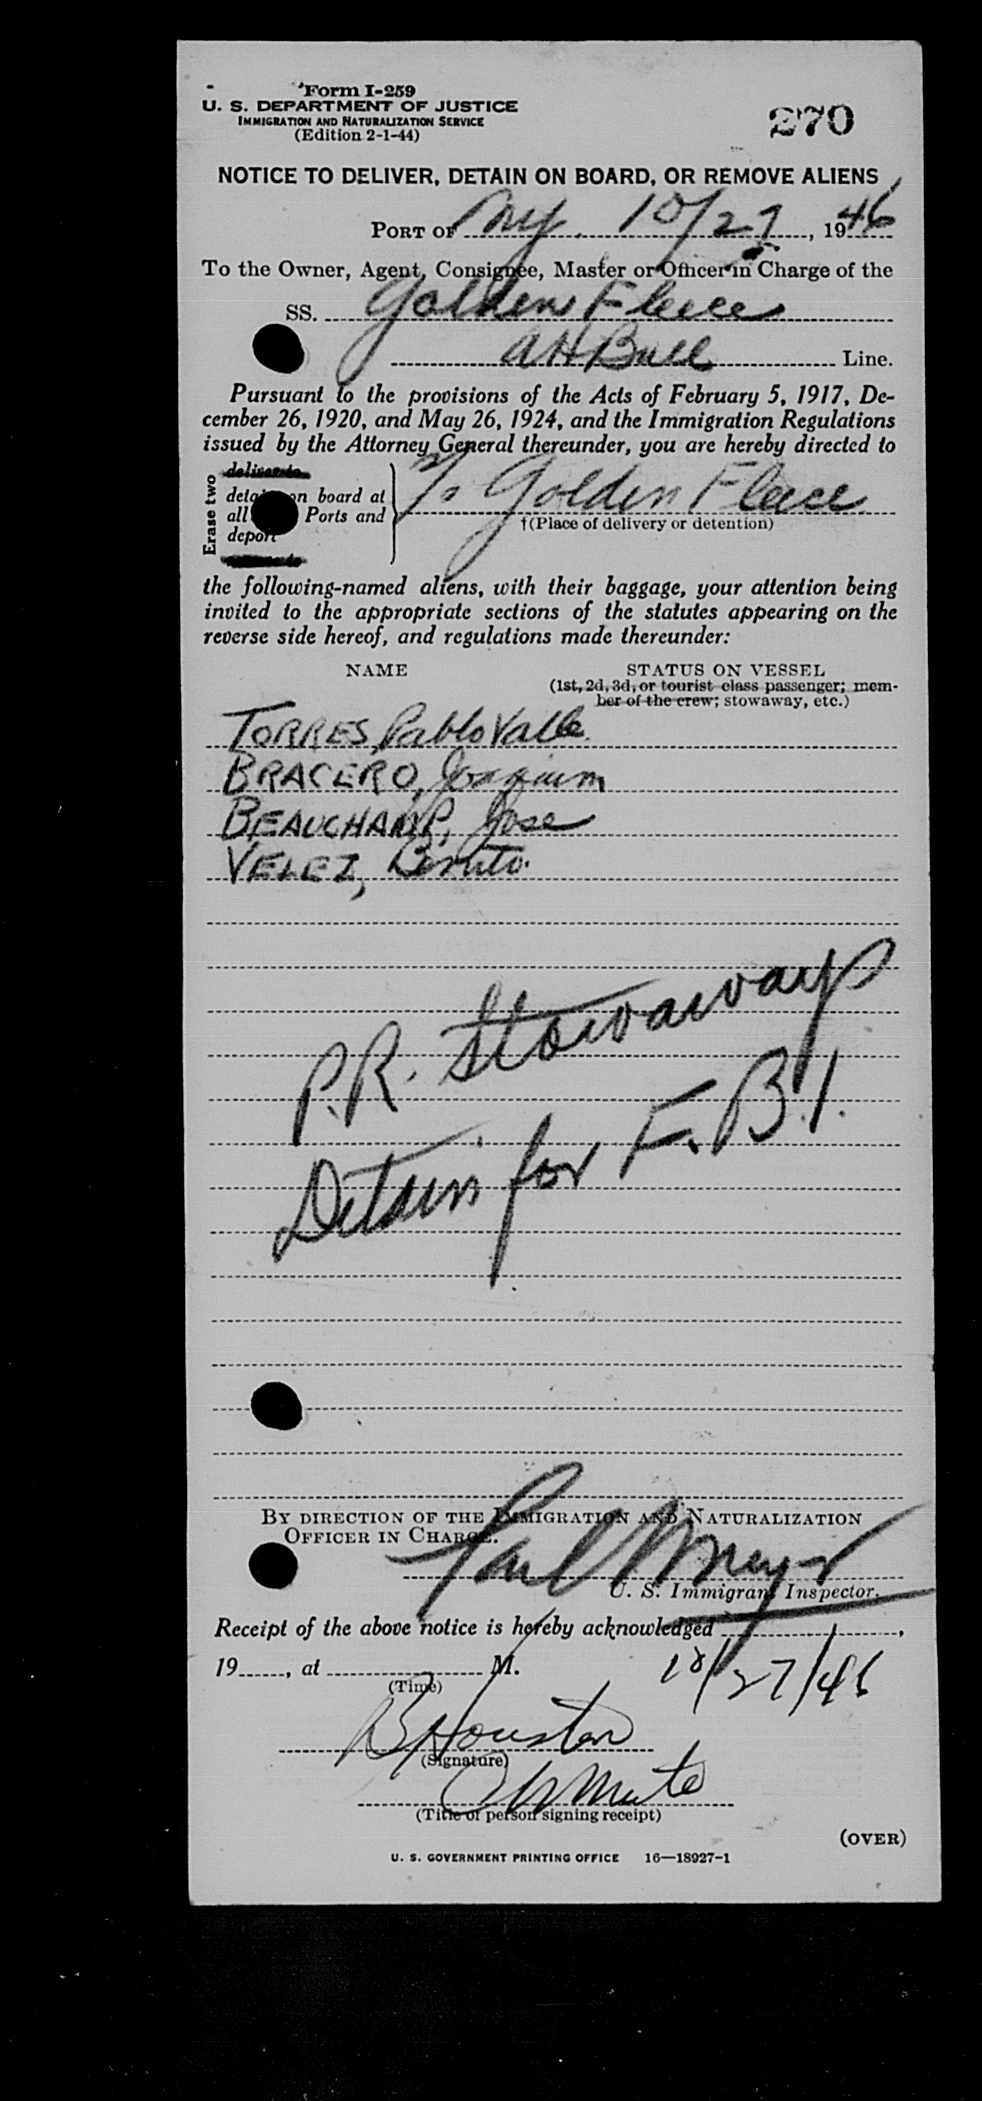 Form I-259
U. S. DEPARTMENT OF JUSTICE
IMMIGRATION AND NATURALIZATION SERVICE
(Edition 2-1-44)
270
NOTICE TO DELIVER, DETAIN ON BOARD, OR REMOVE ALIENS
PORT OF NY. 10/27, 1946
To the Owner, Agent, Consignee, Master or Officer in Charge of the
SS. Golden Fleece
AH Bull Line.
Pursuant to the provisions of the Acts of February 5, 1917, De-
cember 26, 1920, and May 26, 1924, and the Immigration Regulations
issued by the Attorney General thereunder, you are hereby directed to
Erase two
deliver to
detain on board at
all Ports and
deport
Golden Fleece
†(Place of delivery or detention)
the following-named aliens, with their baggage, your attention being
invited to the appropriate sections of the statutes appearing on the
reverse side hereof, and regulations made thereunder:
NAME STATUS ON VESSEL
(1st, 2d, 3d, or tourist class passenger; mem-
ber of the crew; stowaway, etc.)
TORRES Pablo Valle
BRACERO, Joaquim
BEAUCHAMP, Jose
VELEZ, Benito
P.R. Stowaways
Detain for F.B.I.
BY DIRECTION OF THE IMMIGRATION AND NATURALIZATION
OFFICER IN CHARGE.
Paul Meyer
U. S. Immigrant Inspector.
Receipt of the above notice is hereby acknowledged ,
19 , at M. 10/27/46
(Time)
B Houston
(Signature)
Ch Mate
(Title of person signing receipt)
(OVER)
U. S. GOVERNMENT PRINTING OFFICE 16—18927-1